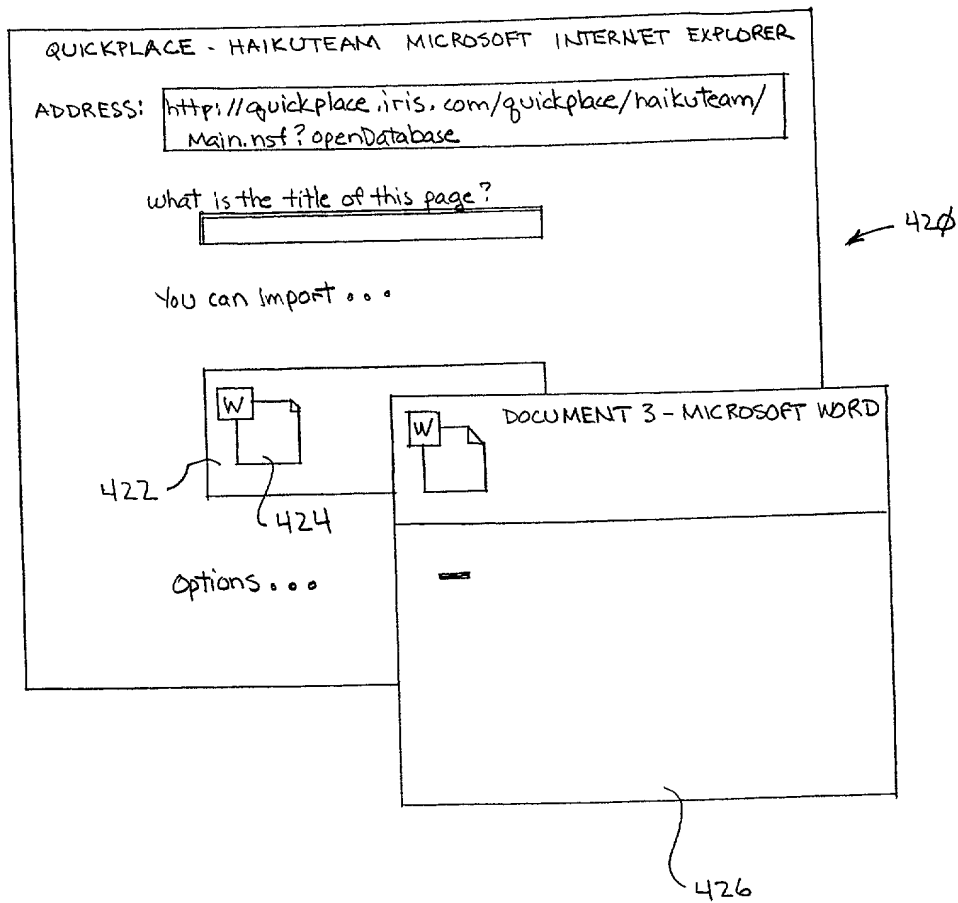 QUICKPLACE - HAIKUTEAM MICROSOFT INTERNET EXPLORER
ADDRESS: http://quickplace.iris.com/quickplace/haikuteam/
Main.nsf?openDatabase
what is the title of this page?
420
You can import...
W
W DOCUMENT 3 - MICROSOFT WORD
422
424
Options...
426